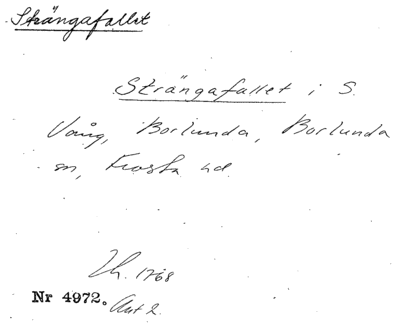 Strängafallet
Strängafallet i S.
Vång, Borlunda, Borlunda
sn, Frosta hd.
Lh. 1768
Nr 4972. Akt 2.